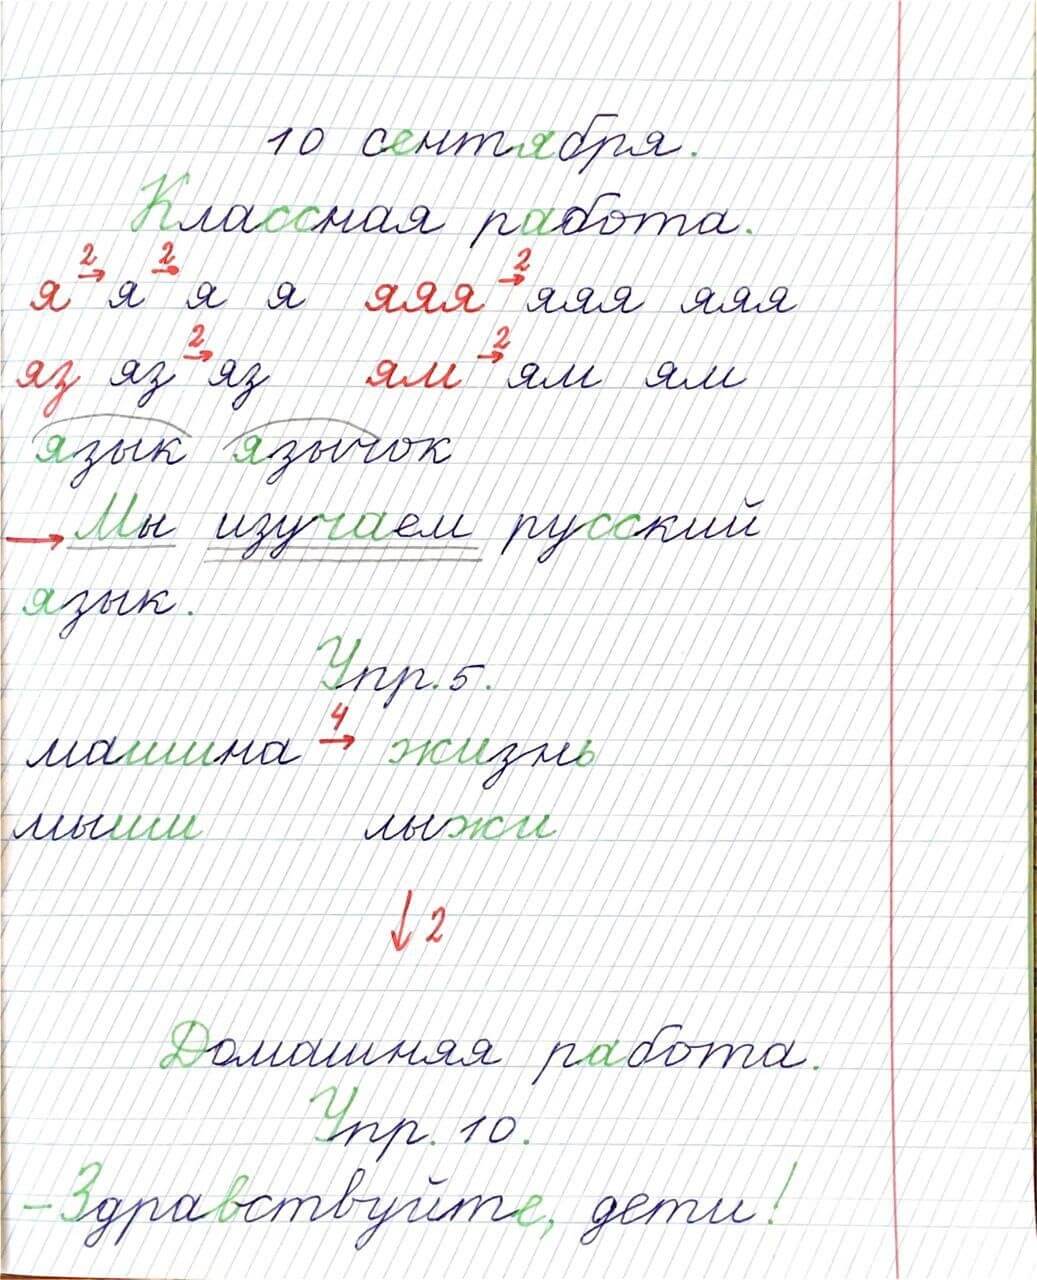 10 сентября.
Классная работа.
я 2→ я 2→ я я яяя 2→ яяя яяя
яз яз 2→ яз ям 2→ ям ям
язык язычок
→ Мы изучаем русский
язык.
Упр. 5.
машина 4→ жизнь
мыши лыжи
↓ 2
Домашняя работа.
Упр. 10.
– Здравствуйте, дети!